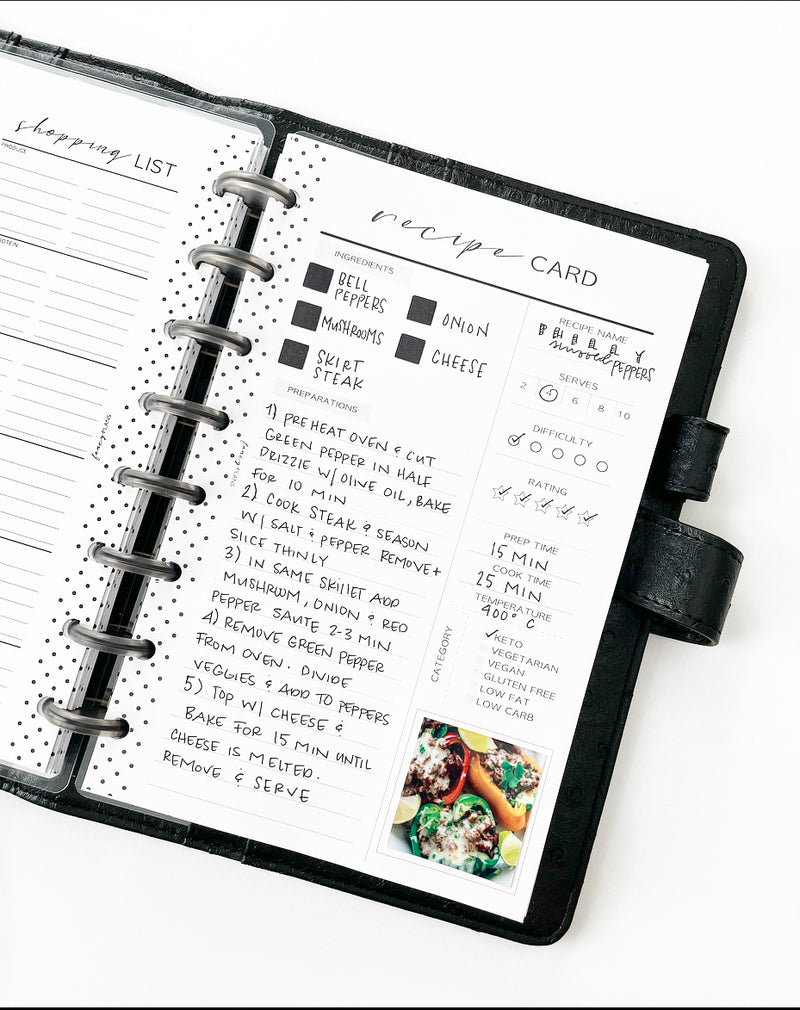 shopping LIST
PRODUCE
recipe CARD
INGREDIENTS
BELL
PEPPERS
ONION
MUSHROOMS
CHEESE
SKIRT
STEAK
PREPARATIONS
1) PREHEAT OVEN & CUT
GREEN PEPPER IN HALF
DRIZZIE W/ OLIVE OIL, BAKE
FOR 10 MIN
2) COOK STEAK & SEASON
W/ SALT & PEPPER REMOVE +
SLICE THINLY
3) IN SAME SKILLET ADD
MUSHROOM, ONION & RED
PEPPER SAUTE 2-3 MIN
4) REMOVE GREEN PEPPER
FROM OVEN. DIVIDE
VEGGIES & ADD TO PEPPERS
5) TOP W/ CHEESE &
BAKE FOR 15 MIN UNTIL
CHEESE IS MELTED.
REMOVE & SERVE
RECIPE NAME
PHILLY
PEPPERS
SERVES
2 4 6 8 10
DIFFICULTY
RATING
PREP TIME
15 MIN
COOK TIME
25 MIN
TEMPERATURE
400° C
CATEGORY
KETO
VEGETARIAN
VEGAN
GLUTEN FREE
LOW FAT
LOW CARB